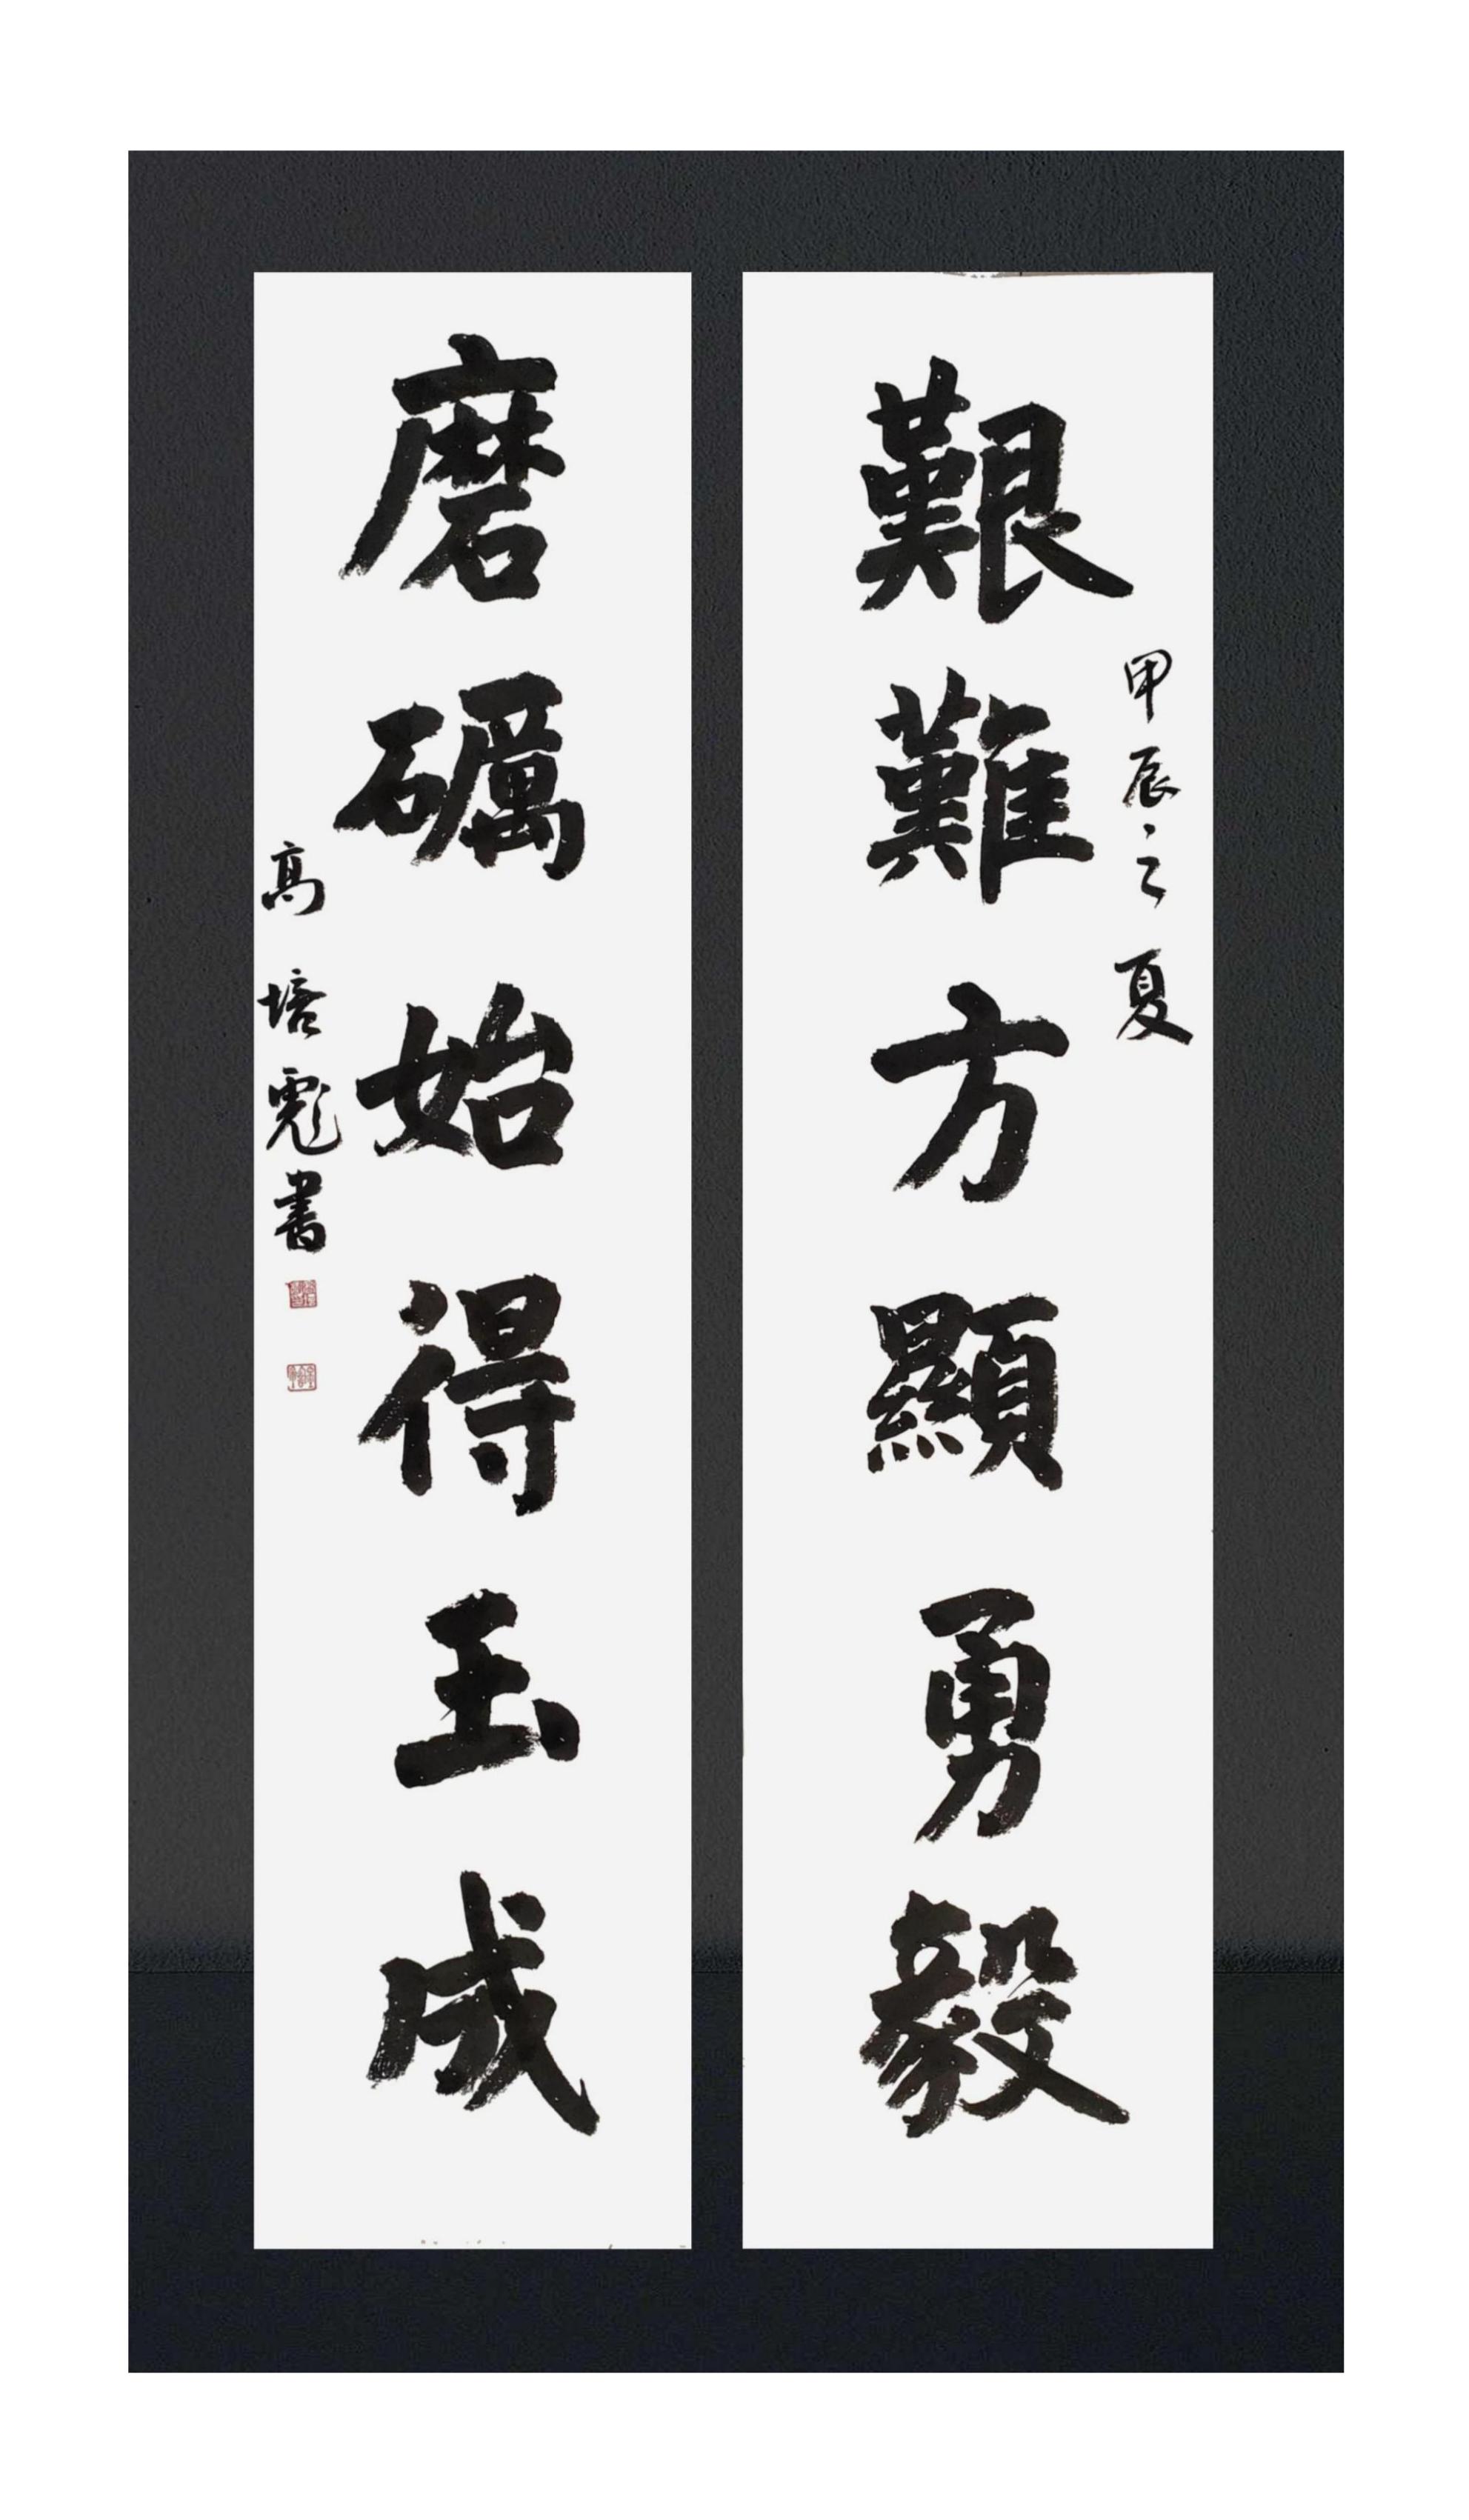 甲辰之夏
艱難方顯勇毅
磨礪始得玉成
高培彪書